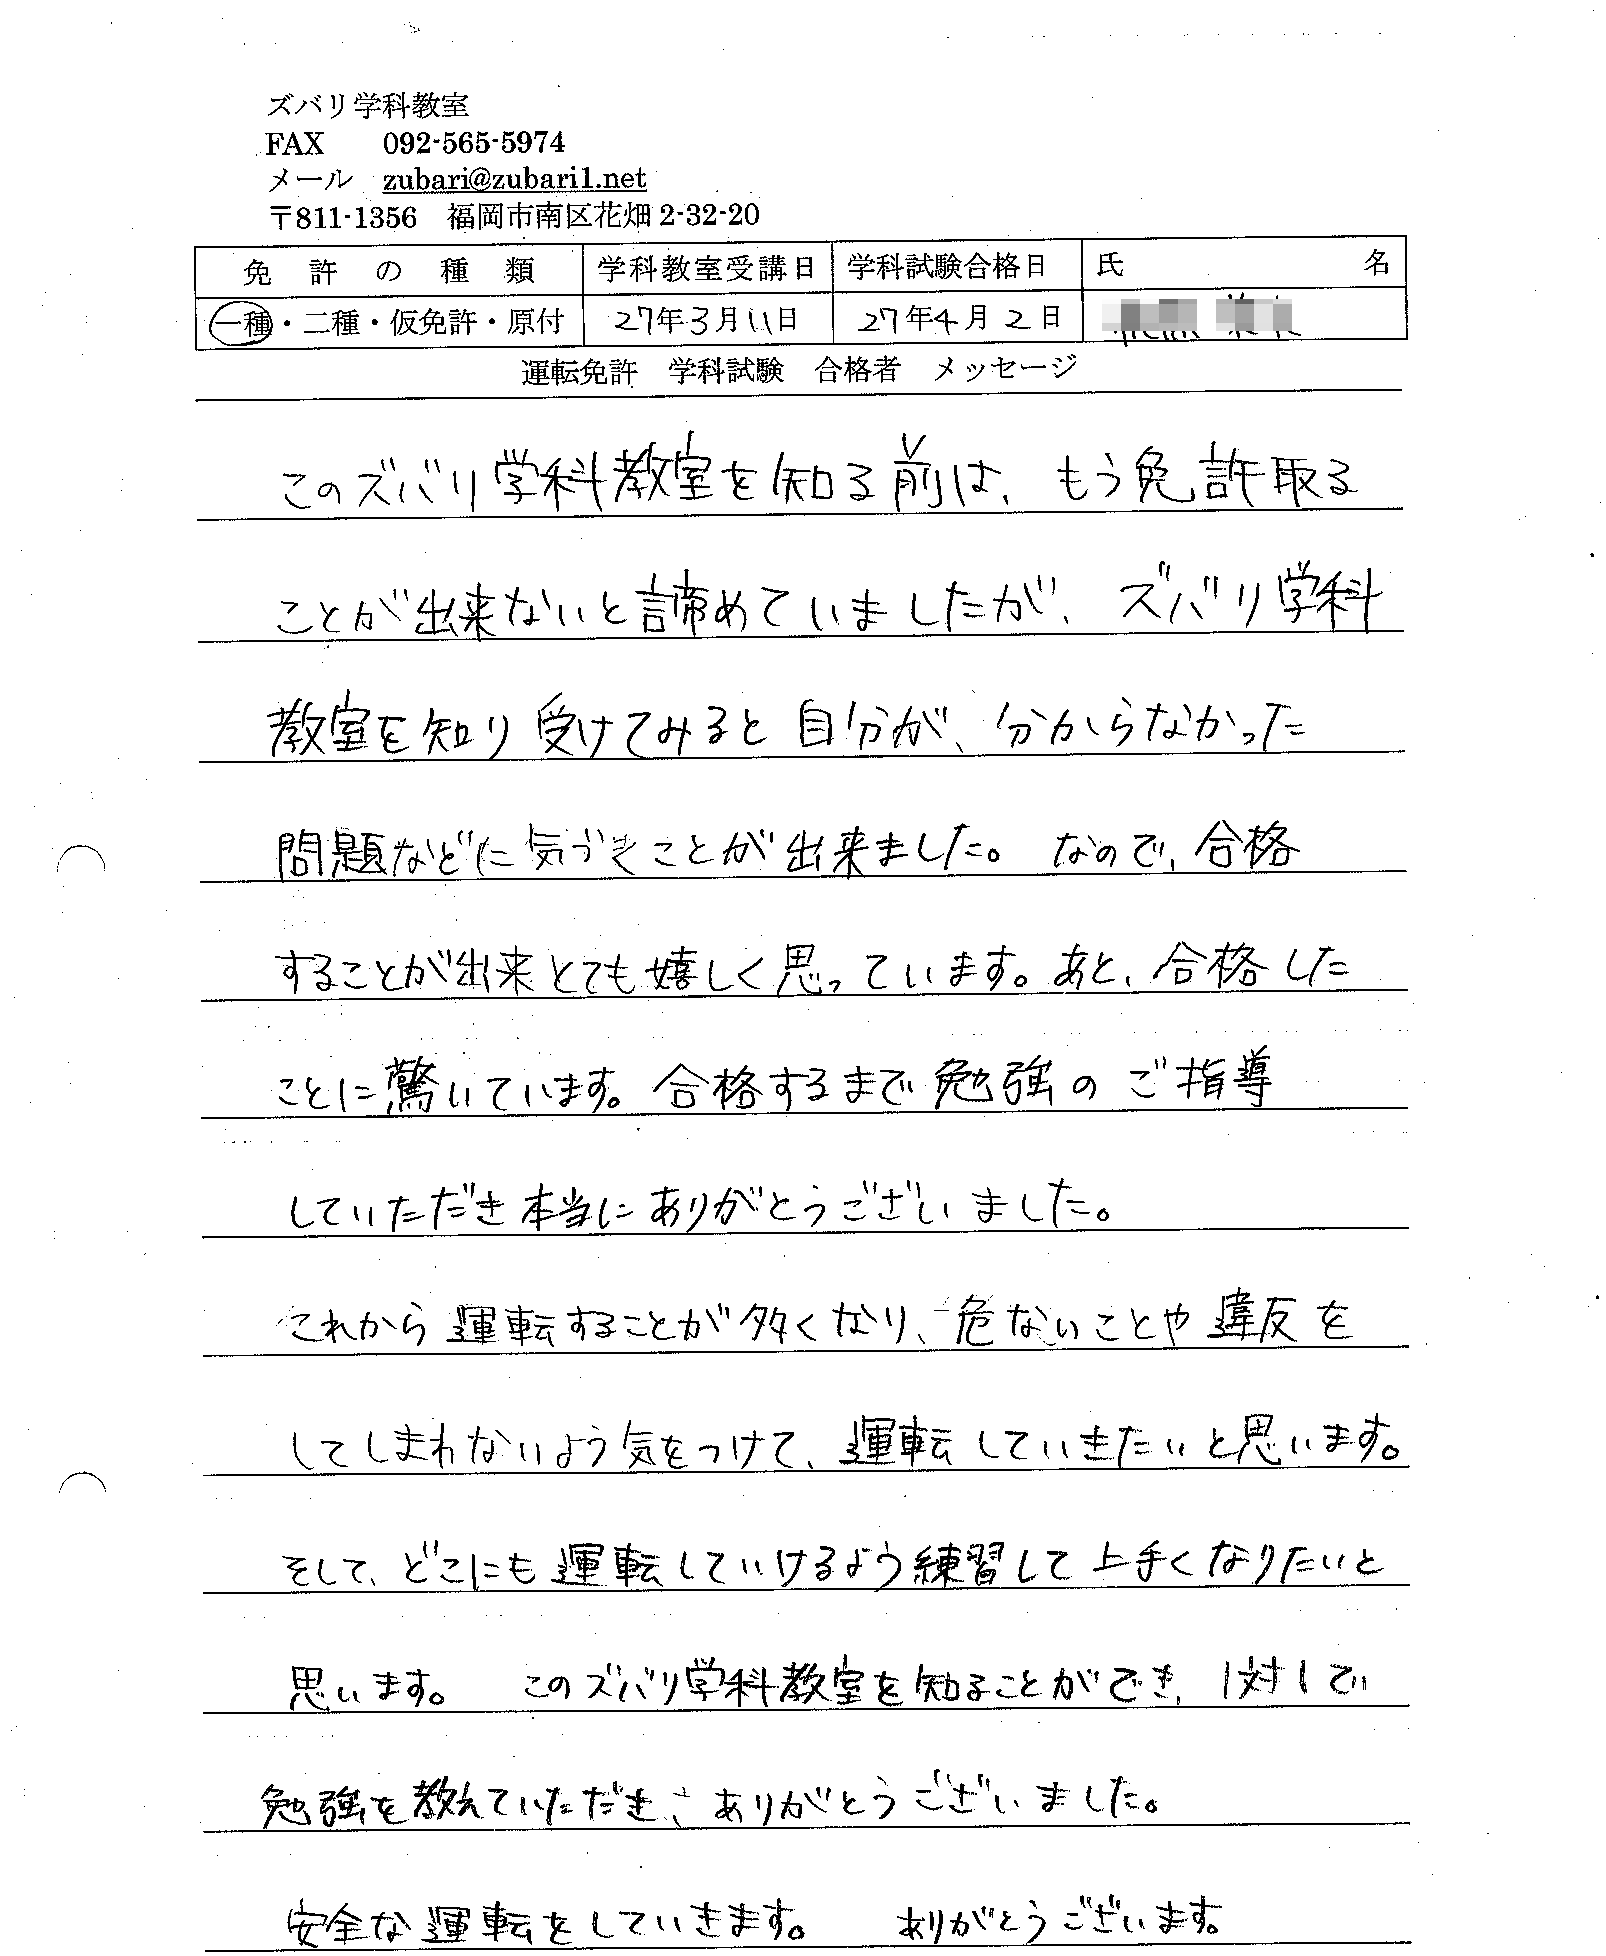 ズバリ学科教室
FAX 092-565-5974
メール zubari@zubari1.net
〒811-1356 福岡市南区花畑2-32-20
免許の種類 学科教室受講日 学科試験合格日 氏名
一種・二種・仮免許・原付 27年3月11日 27年4月2日
運転免許 学科試験 合格者 メッセージ
このズバリ学科教室を知る前は、もう免許取る
ことが出来ないと諦めていましたが、ズバリ学科
教室を知り受けてみると自分が、分からなかった
問題などに気づきことが出来ました。なので、合格
することが出来とても嬉しく思っています。あと、合格した
ことに驚いています。合格するまで勉強のご指導
していただき本当にありがとうございました。
これから運転することが多くなり、危ないことや違反を
してしまわないよう気をつけて、運転していきたいと思います。
そして、どこにも運転していけるよう練習して上手くなりたいと
思います。 このズバリ学科教室を知ることができ、1対1で
勉強を教えていただき、ありがとうございました。
安全な運転をしていきます。 ありがとうございます。